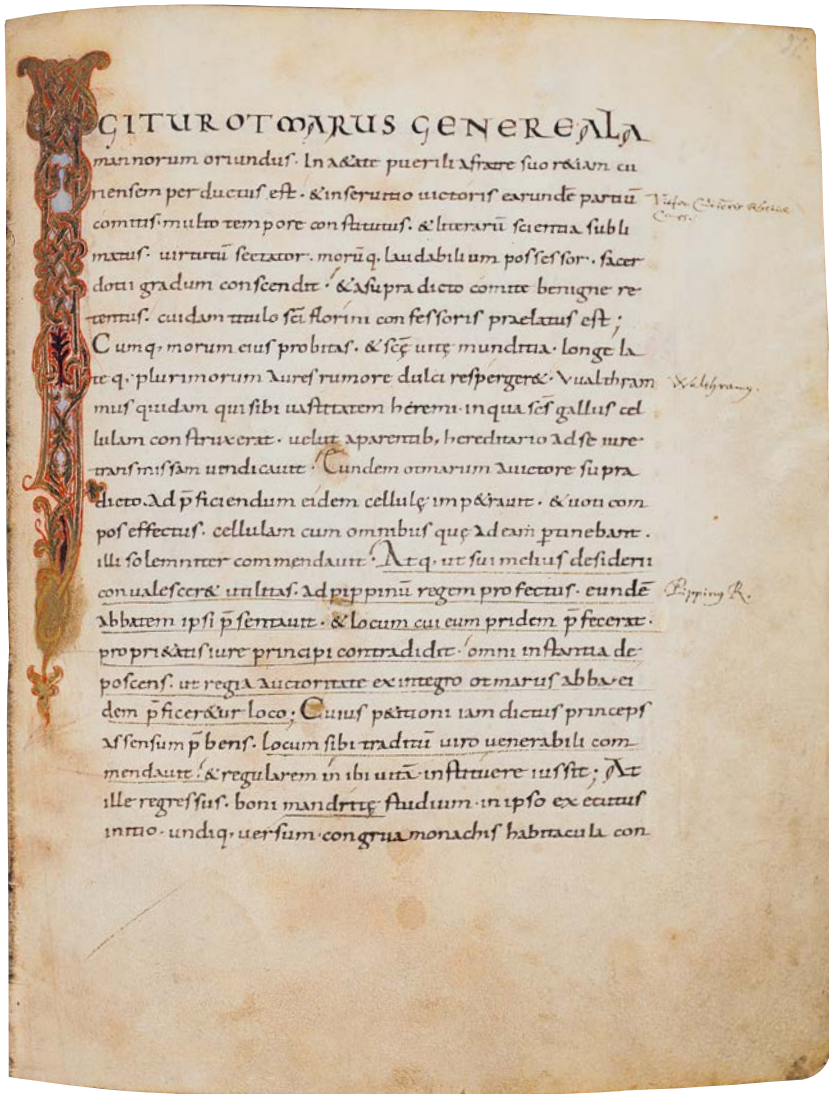 IGITUR OTMARUS GENERE ALA
mannorum oriundus. In &ate puerili afratre suo r&iam cu
riensem perductus est. & inseruitio uictoris earundē partiū
comitis. multo tempore constitutus. & literarū scientia subli
matus. uirtutū sectator. morūq, laudabilium possessor. sacer
dotii gradum conscendit. & asupra dicto comite benigne re
tentus. cuidam titulo sci florini confessoris praelatus est;
Cumq, morum eius probitas. & scę uitę munditia. longe la
teq. plurimorum aures rumore dulci resperger&. Vualthram
mus quidam qui sibi uastitatem heremi. in qua scs gallus cel
lulam construxerat. uelut aparentib, hereditario ad se iure
transmissam uendicauit. Eundem otmarum auictore supra
dicto. ad p̄ficiendum eidem cellulę imp&rauit. & uoti com
pos effectus. cellulam cum omnibus quę ad eam ptinebant.
illi solemniter commendauit. Atq, ut sui melius desiderii
conualescer& utilitas. ad pippinū regem profectus. eundē
abbatem ipsi p̄sentauit. & locum cui eum pridem p̄fecerat.
propri&atis iure principi contradidit. omni instantia de
poscens. ut regia auctoritate ex integro otmarus abba ei
dem p̄ficer&ur loco; Cuius p&itioni iam dictus princeps
assensum p̄bens. locum sibi traditū uiro uenerabili com
mendauit. & regularem in ibi uitā instituere iussit; At
ille regressus. boni mandritę studium. in ipso exercitus
initio. undiq, uersum. congrua monachis habitacula con
Walthramus.
Pipping R.